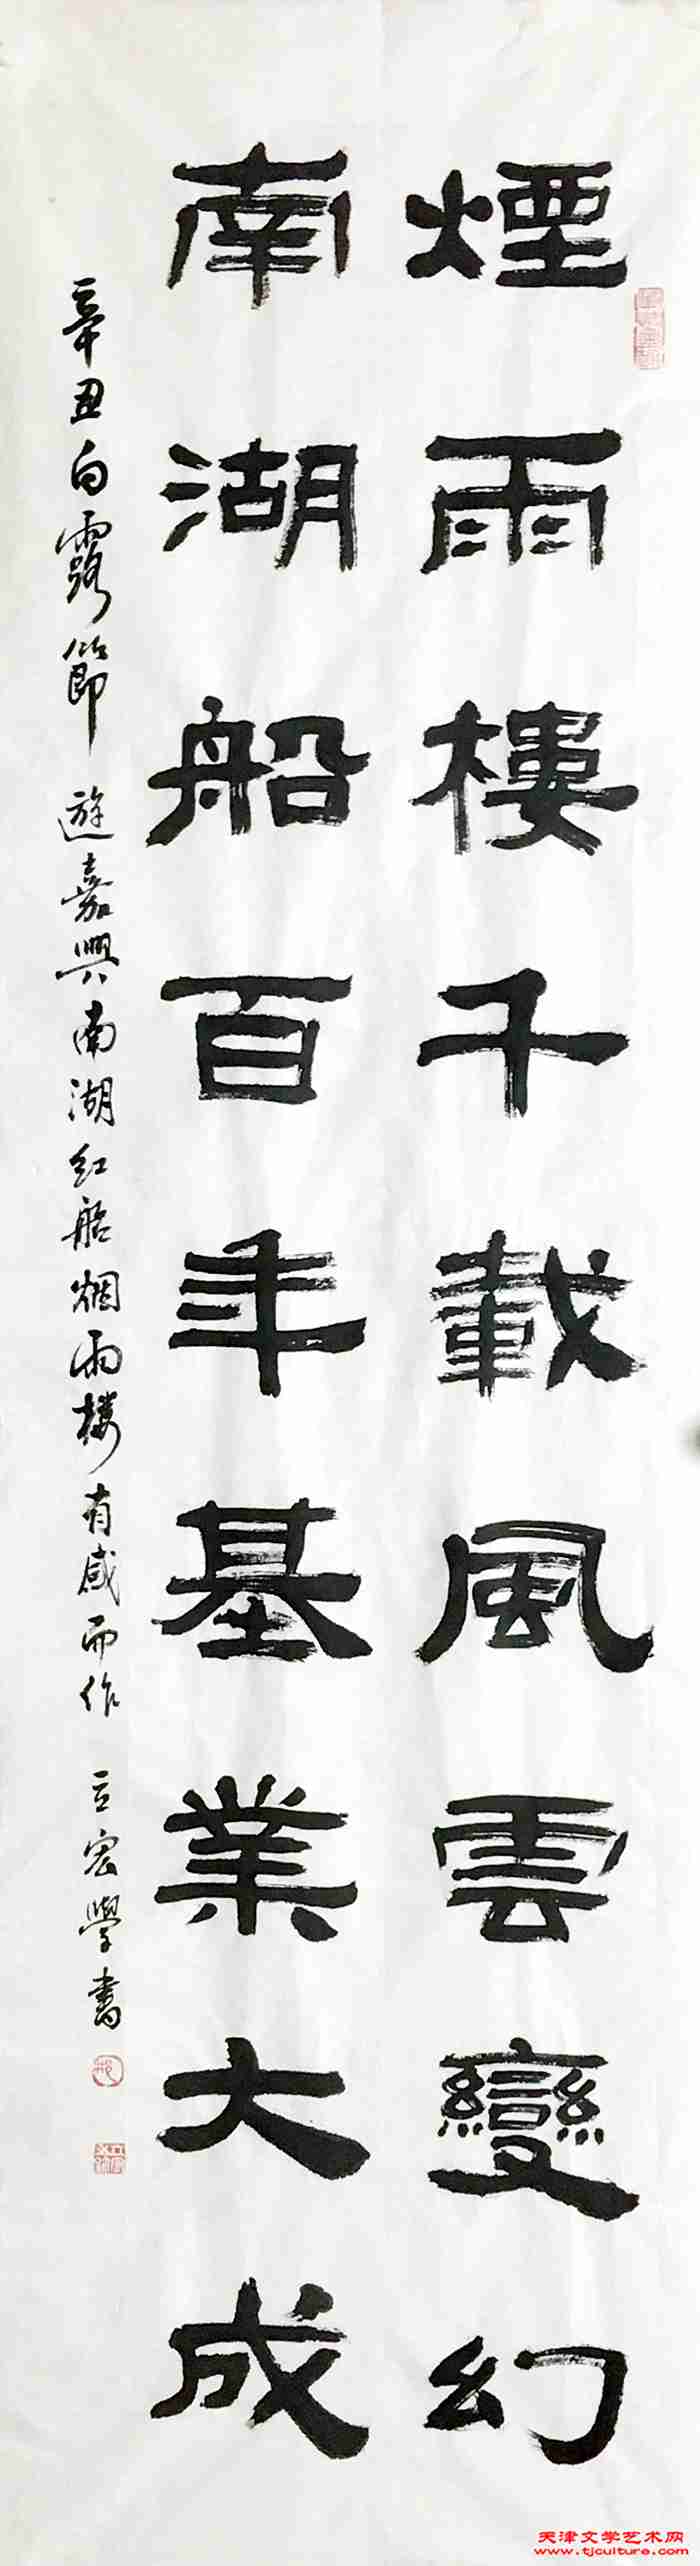 煙雨樓千載風雲變幻
南湖船百年基業大成
辛丑白露節 遊嘉興南湖红船烟雨楼有感而作 立宏學書
天津文学艺术网
www.tjculture.com